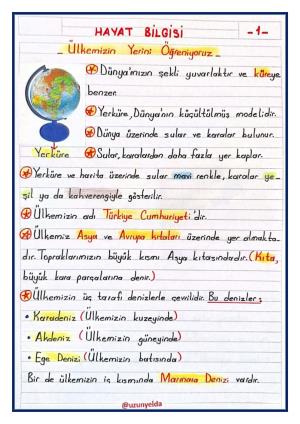 HAYAT BİLGİSİ -1-
Ülkemizin Yerini Öğreniyoruz
Dünya'mızın şekli yuvarlaktır ve küreye
benzer.
Yerküre, Dünya'nın küçültülmüş modelidir.
Dünya üzerinde sular ve karalar bulunur.
Yerküre
Sular, karalardan daha fazla yer kaplar.
Yerküre ve harita üzerinde sular mavi renkle, karalar ye-
şil ya da kahverengiyle gösterilir.
Ülkemizin adı Türkiye Cumhuriyeti'dir.
Ülkemiz Asya ve Avrupa kıtaları üzerinde yer almakta-
dır. Topraklarımızın büyük kısmı Asya kıtasındadır. (Kıta,
büyük kara parçalarına denir.)
Ülkemizin üç tarafı denizlerle çevrilidir. Bu denizler;
• Karadeniz (Ülkemizin kuzeyinde)
• Akdeniz (Ülkemizin güneyinde)
• Ege Denizi (Ülkemizin batısında)
Bir de ülkemizin iç kısmında Marmara Denizi vardır.
@uzunyelda